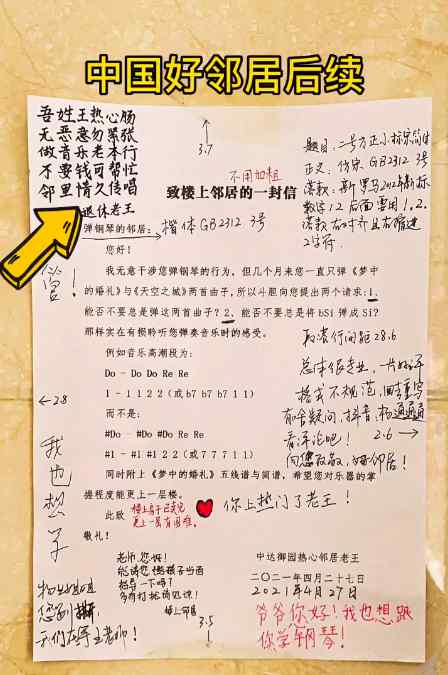 中国好邻居后续
吾姓王热心肠
无恶意勿紧张
做音乐老本行
不要钱可帮忙
邻里情久传唱
退休老王
3.7
不用加粗
致楼上邻居的一封信
题目：二号方正小标宋简体
正文：仿宋GB2312 3号
落款：新罗马2012年新标
数字12后面要用1.2.
落款右对齐且右缩进
2字符.
弹钢琴的邻居：
楷体GB2312 3号
您好！
我无意干涉您弹钢琴的行为，但几个月来您一直只弹《梦中
的婚礼》与《天空之城》两首曲子，所以斗胆向您提出两个请求：1、
能否不要总是弹这两首曲子？2、能否不要总是将bSi弹成Si？
那样实在有损聆听您弹奏音乐时的感受。
段落行间距28.6
例如音乐高潮段为：
Do - Do Do Re Re
1 - 1 1 2 2（或b7 b7 b7 1 1）
而不是：
#Do - #Do #Do Re Re
#1 - #1 #1 2 2（或7 7 7 1 1）
总体很专业，一片好评
格式不规范，回去重写
看评论吧！
2.6
向您致敬，好邻居！
同时附上《梦中的婚礼》五线谱与简谱，希望您对乐器的掌
握程度能更上一层楼。
此致
敬礼！
楼上房子已卖完
更上一层有困难，
你上热门了老王！
学！
2.8
我也想学
老师，您好！
能请您把孩子当面
指导一下吗？
多有打扰请见谅！
楼上邻居
中达御园热心邻居老王
二〇二一年四月二十七日
2021年4月27日
爷爷你好！我也想跟
你学钢琴！
您别撕，
我们在等王老师！
3.5